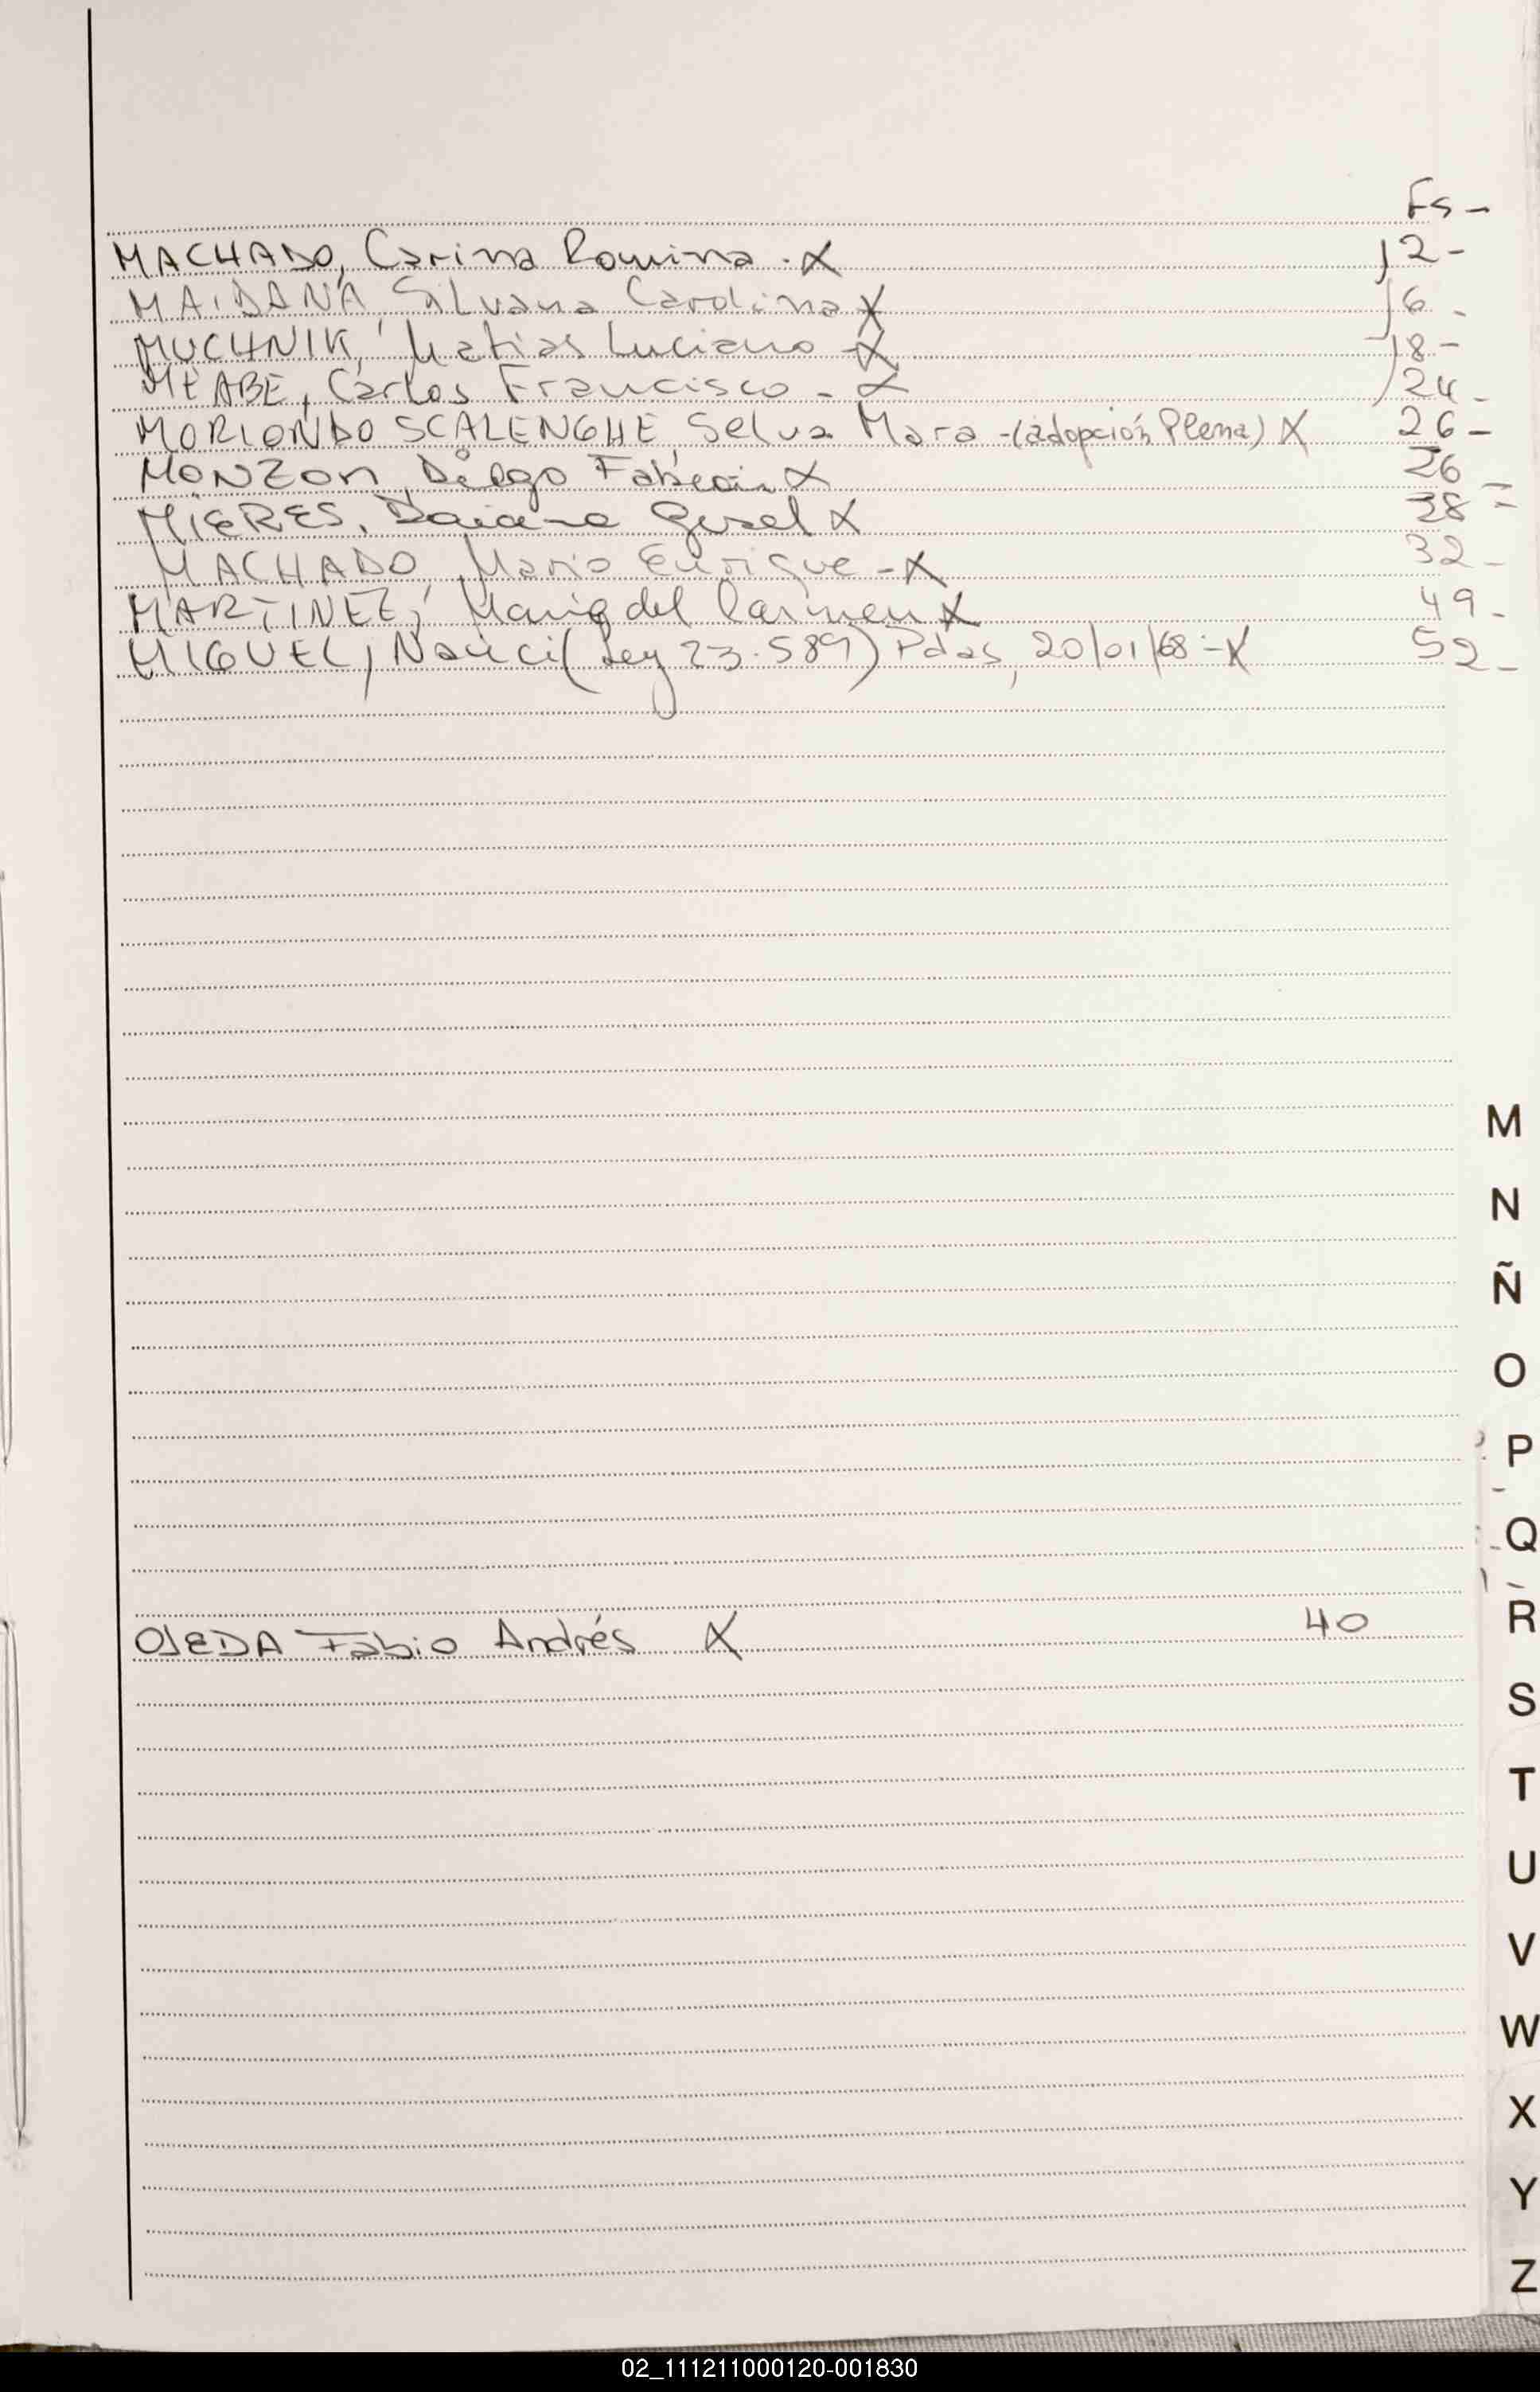 Fs-
MACHADO, Carina Romina.X 12-
MAIDANA, Silvana Carolina X 16-
MUCHNIK, Matias Luciano-X 18-
MEABE, Carlos Francisco-X 24-
MORIONDO SCALENGHE, Selva Mara-(adopción Plena) X 26-
MONZON, Diego Fabián X 26
MIERES, Daiana Gisel X 28=
MACHADO, Mario Enrique-X 32-
MARTINEZ, María del Carmen X 49-
MIGUEL, Nanci (Ley 23.589) Pdas, 20/01/68-X 52-
OJEDA Fabio Andrés X 40
M
N
Ñ
O
P
Q
R
S
T
U
V
W
X
Y
Z
02_111211000120-001830